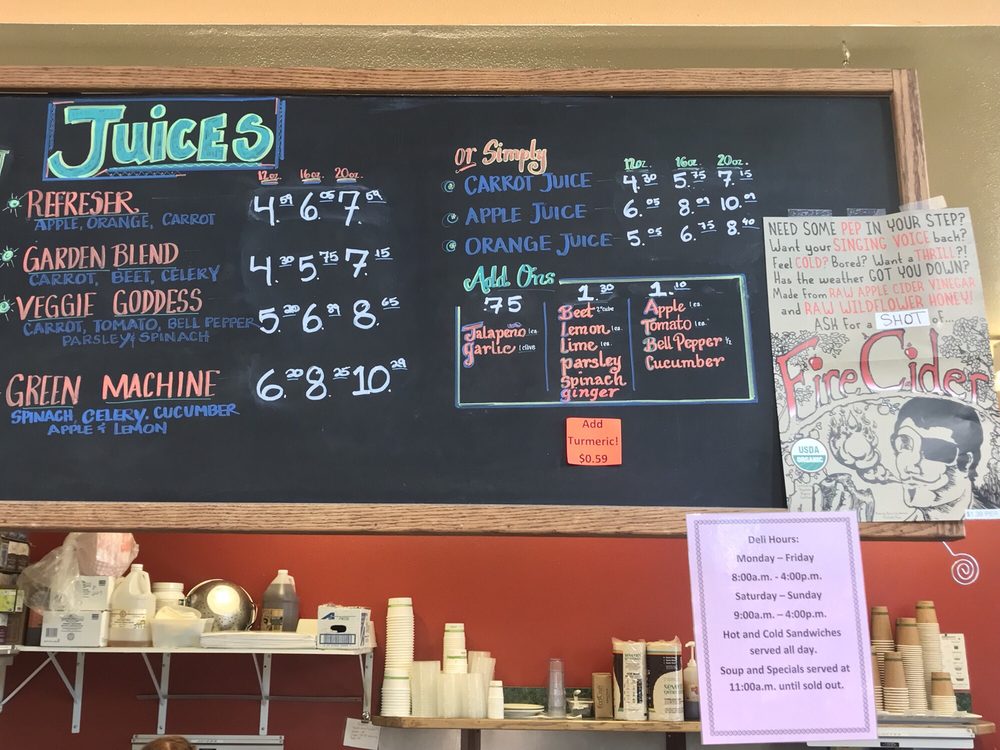 Juices
12oz. 16oz. 20oz.
REFRESER. 4.59 6.05 7.59
APPLE, ORANGE, CARROT
GARDEN BLEND 4.30 5.75 7.15
CARROT, BEET, CELERY
VEGGIE GODDESS 5.20 6.89 8.65
CARROT, TOMATO, BELL PEPPER
PARSLEY & SPINACH
GREEN MACHINE 6.20 8.25 10.29
SPINACH, CELERY, CUCUMBER
APPLE & LEMON
or Simply
12oz. 16oz. 20oz.
CARROT JUICE 4.30 5.75 7.15
APPLE JUICE 6.05 8.09 10.09
ORANGE JUICE 5.05 6.75 8.40
Add Ons
.75
Jalapeno 1 ea.
garlic 1 clove
1.30
Beet 2" cube
Lemon 1 ea.
Lime 1 ea.
parsley
spinach
ginger
1.10
Apple 1 ea.
Tomato 1 ea.
Bell Pepper 1/2
Cucumber
Add
Turmeric!
$0.59
NEED SOME PEP IN YOUR STEP?
Want your SINGING VOICE back?
Feel COLD? Bored? Want a THRILL?!
Has the weather GOT YOU DOWN?
Made From RAW APPLE CIDER VINEGAR
and RAW WILDFLOWER HONEY!
ASK For a SHOT of...
Fire Cider
USDA
ORGANIC
Deli Hours:
Monday – Friday
8:00a.m. - 4:00p.m.
Saturday – Sunday
9:00a.m. – 4:00p.m.
Hot and Cold Sandwiches
served all day.
Soup and Specials served at
11:00a.m. until sold out.